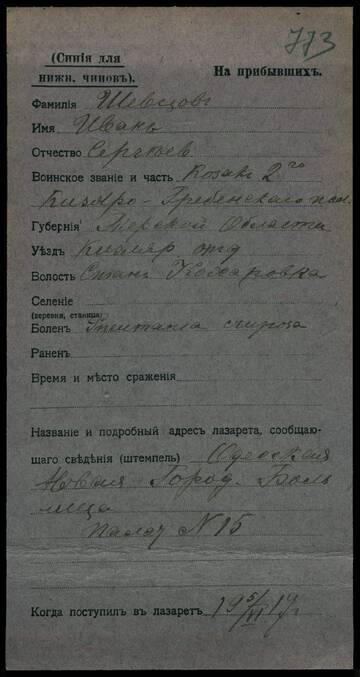 773
(Синія для
нижн. чиновъ).
На прибывшихъ.
Фамилія Шевцовъ
Имя Иванъ
Отчество Сергѣев
Воинское званіе и часть Козакъ 2го
Кизляро-Гребенскаго пол.
Губернія Терской Области
Уѣздъ Кизляр отд
Волость Стан.
Селеніе
(деревня, станица)
Боленъ
Раненъ
Время и мѣсто сраженія
Названіе и подробный адресъ лазарета, сообщаю-
щаго свѣдѣнія (штемпель) Одесская
Новая Город. Боль
ница
палат N 15
Когда поступилъ въ лазаретъ 19 5/VI 17